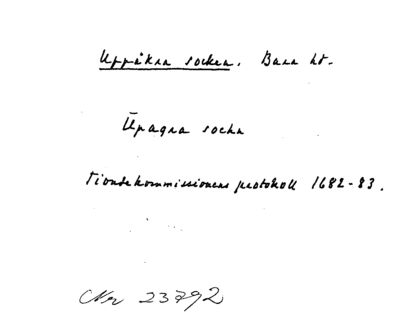 Uppåkra socken. Bara hd.
Ūpagra sochn
Tiondekommissionens protokoll 1682-83.
Nr 23792